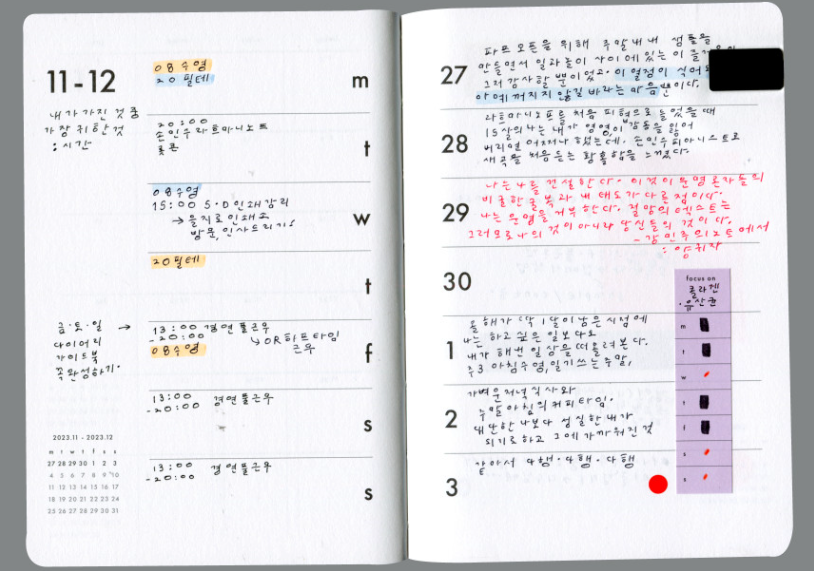 11-12
내가 가진 것 중
가장 귀한 것
: 시간
금·토·일 →
다이어리
가이드북
꼭 완성하기.
2023.11 - 2023.12
m t w t f s s
27 28 29 30 1 2 3
4 5 6 7 8 9 10
11 12 13 14 15 16 17
18 19 20 21 22 23 24
25 26 27 28 29 30 31
08 수영
20 필테
m
20:00
손민수 라흐마니노프
t
08 수영
15:00 S·D 인쇄 감리
→ 을지로 인쇄소
방문, 인사드리기!
w
20 필테
t
13:00 경연툴근무
-20:00 ↳ OR 파트타임
근무
08 수영
f
13:00 경연툴근무
-20:00
s
13:00 경연툴근무
-20:00
s
27
오픈을 위해 주말 내내 샘플을
만들면서 일과 놀이 사이에 있는 이
그저 감사할 뿐이었고. 이 열정이 식어
아예 꺼지지 않길 바라는 마음뿐이다.
28
라흐마니노프를 처음 피협으로 들었을 때
15살의 나는 내가 영영 이 감동을 잃어
버리면 어쩌나 했는데, 손민수 피아니스트로
새 곡을 처음 듣는 황홀함을 느꼈다.
29
나는 나를 건설한다. 이것이 운명론자들의
비굴한 굴복과 내 태도가 다른 점이다.
나는 운명을 거부한다. 절망의 텍스트는
그러므로 나의 것이 아니라 당신들의 것이다.
- 강민주의 노트에서
: 양귀자
30
focus on
콜라겐
·유산균
m
t
w
t
f
s
s
1
올해가 딱 1달이 남은 시점에
나는 하고 싶은 일보다도
내가 해낸 일상을 떠올려본다.
주3 아침수영, 일기쓰는 주말,
2
가벼운 저녁식사와
주말 아침의 커피타임.
대단한 나보다 성실한 내가
되기로 하고 그에 가까워진 것
3
같아서 다행·다행·다행